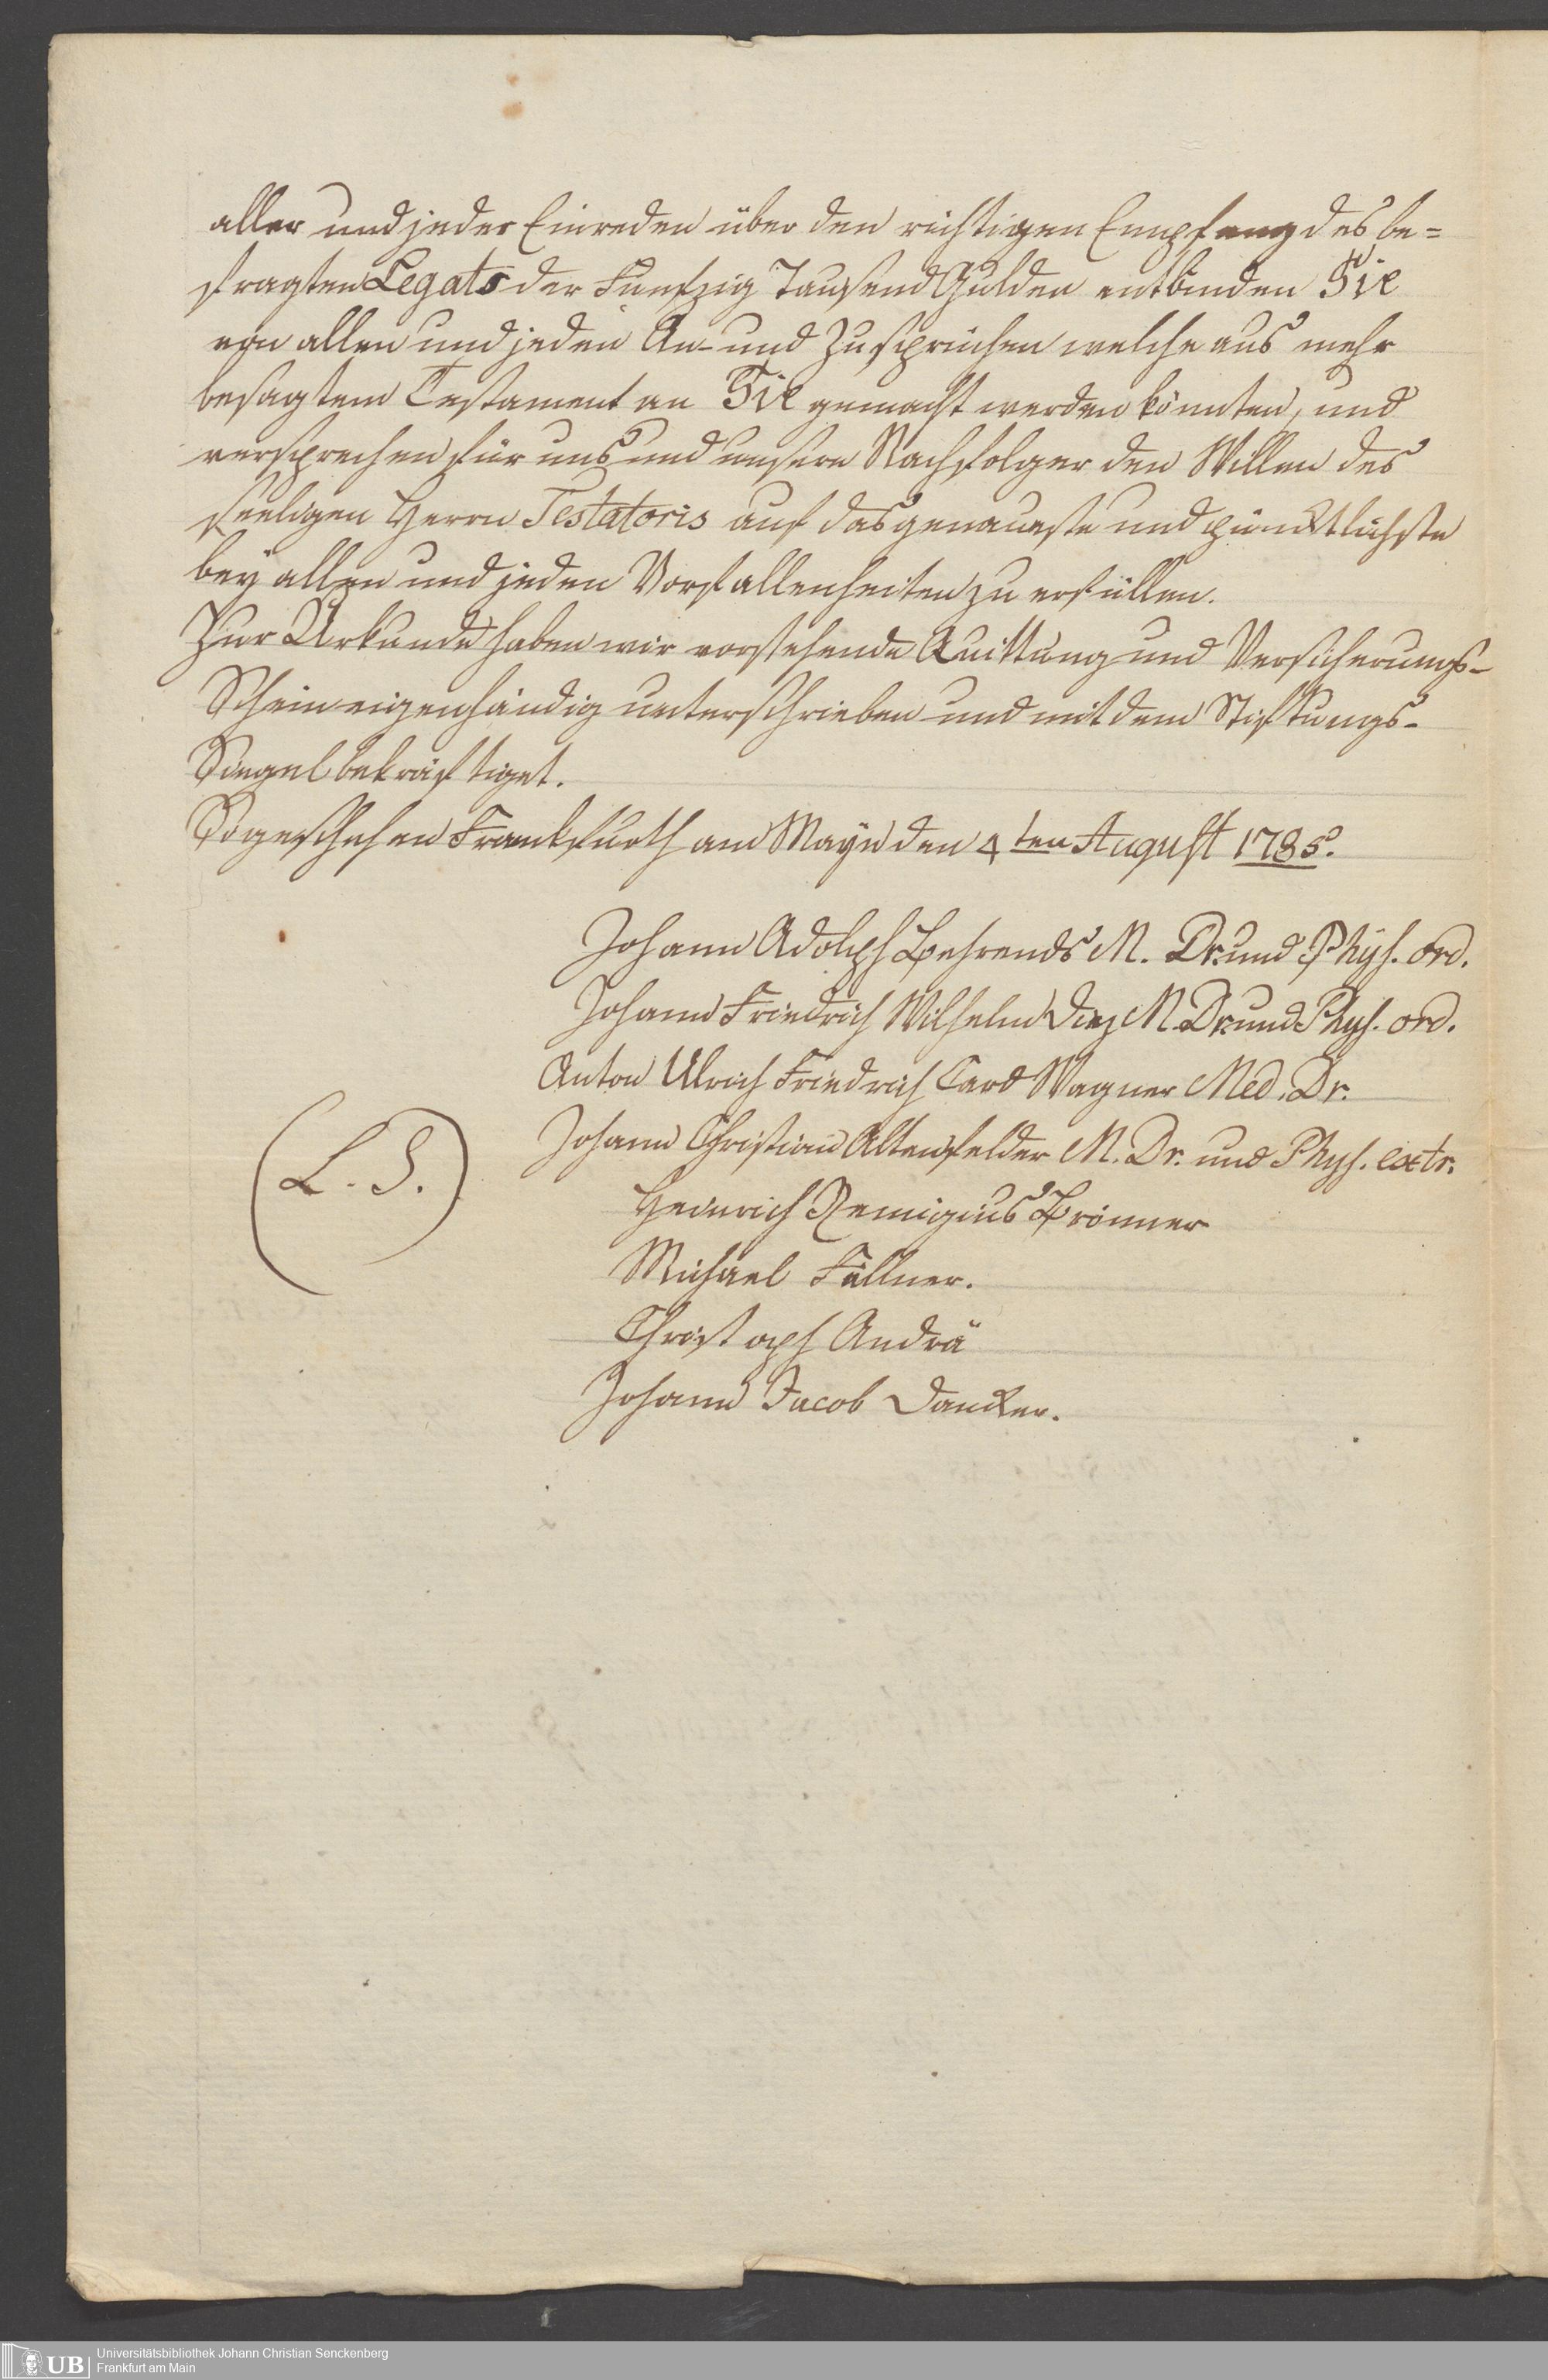 aller und jeder Einreden über den richtigen Empfang des be=
fragten Legats der Funfzig Tausend Gulden entbinden Sie
von allen und jeden An- und Zusprüchen welche aus mehr
besagtem Testament an Sie gemacht werden könnten, und
versprechen für uns und unsere Nachfolger den Willen des
seeligen Herrn Testatoris auf das genaueste und pünktlichste
bey allen und jeden Vorfallenheiten zu erfüllen.
Zur Urkunde haben wir vorstehende Quittung und Versicherungs-
Schein eigenhändig unterschrieben und mit dem Stiftungs-
Siegel bekräftiget.
So geschehen Frankfurth am Mayn den 4ten August 1785.
Johann Adolph Behrends M. Dr. und Phys. ord.
Johann Friedrich Wilhelm Diez M. Dr. und Phys. ord.
Anton Ulrich Friedrich Carl Wagner Med. Dr.
Johann Christian Altenfelder M. Dr. und Phys. extr.
(L. S.)
Heinrich Remigius Brönner
Michael Fällner.
Christoph Andrä
Johann Jacob Dancker.
UB Universitätsbibliothek Johann Christian Senckenberg
Frankfurt am Main